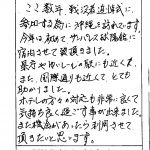 ここ数年、戦没者追悼式に
参加する為に沖縄を訪れています。
今年は初めてサンパレス球陽館に
宿泊させて頂きました。
県庁やゆいレールの駅にも近くて、
また、国際通りも近くてとても
助かりました。
ホテルの方々の対応も非常に良くて
気持ち良く過ごす事が出来ました。
また機会があったら利用させて
頂きたいと思います。